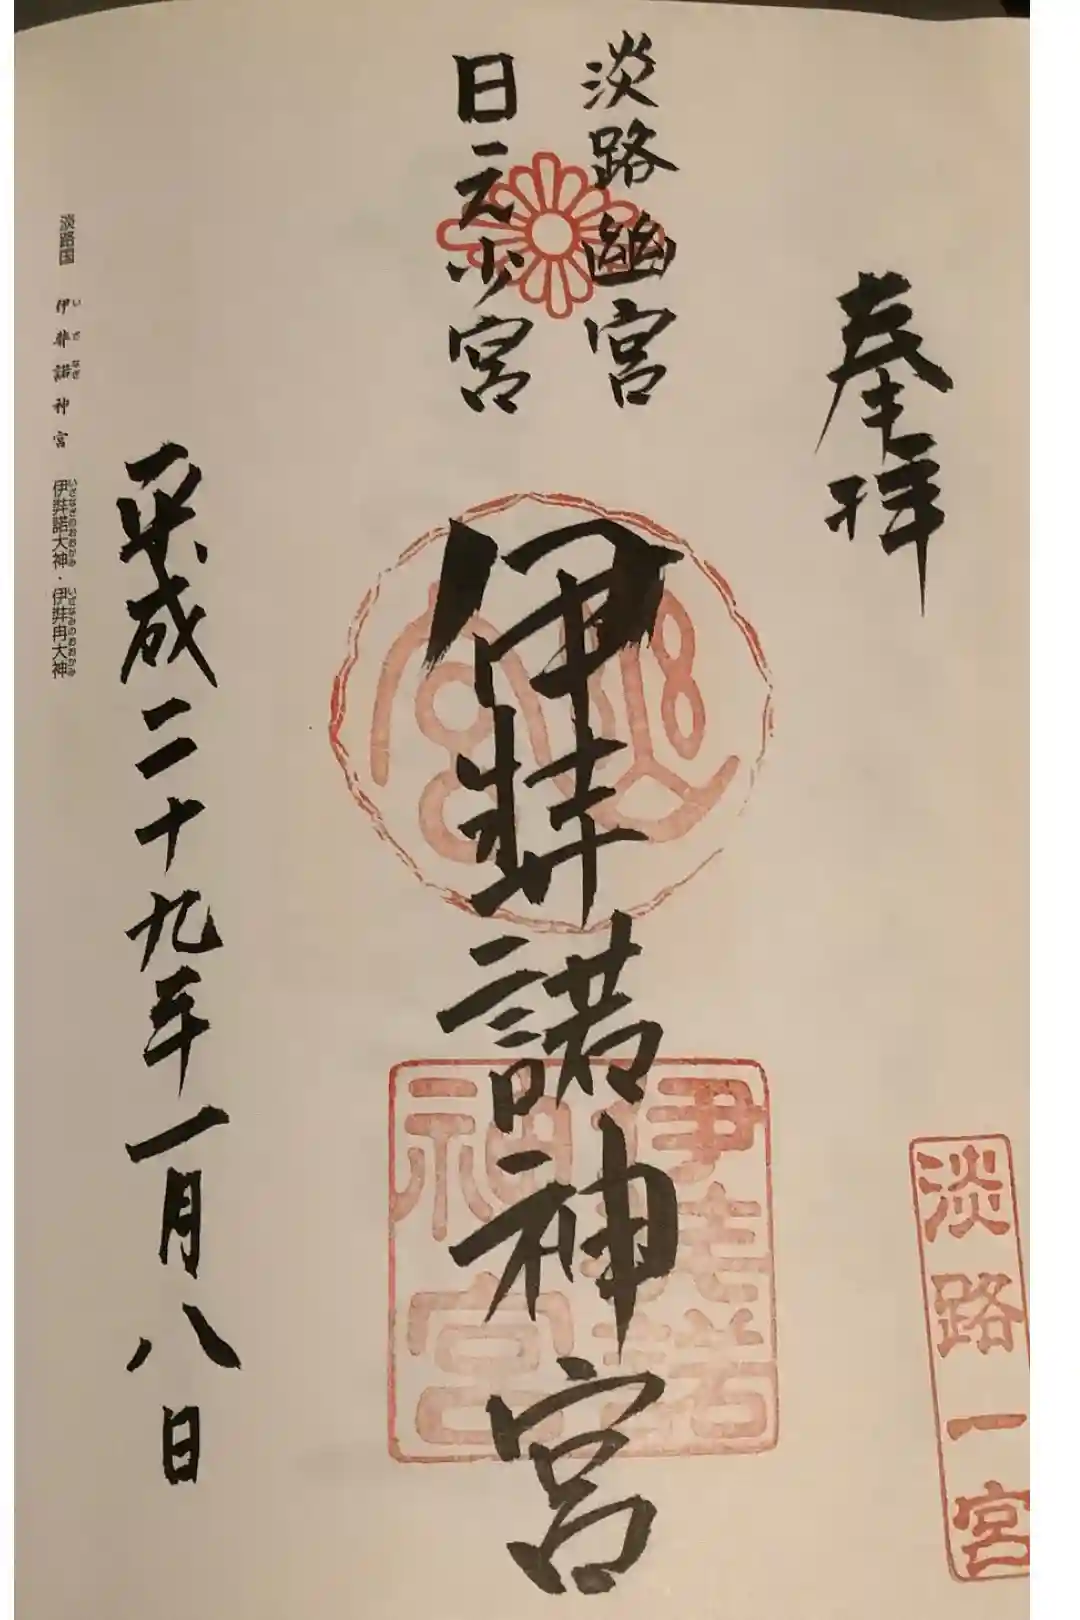 奉拝
淡路幽宮
日元少宮
伊弉諾神宮
平成二十九年一月八日
淡路一宮
伊弉諾神宮
淡路国 伊弉諾神宮 伊弉諾大神・伊弉冉大神